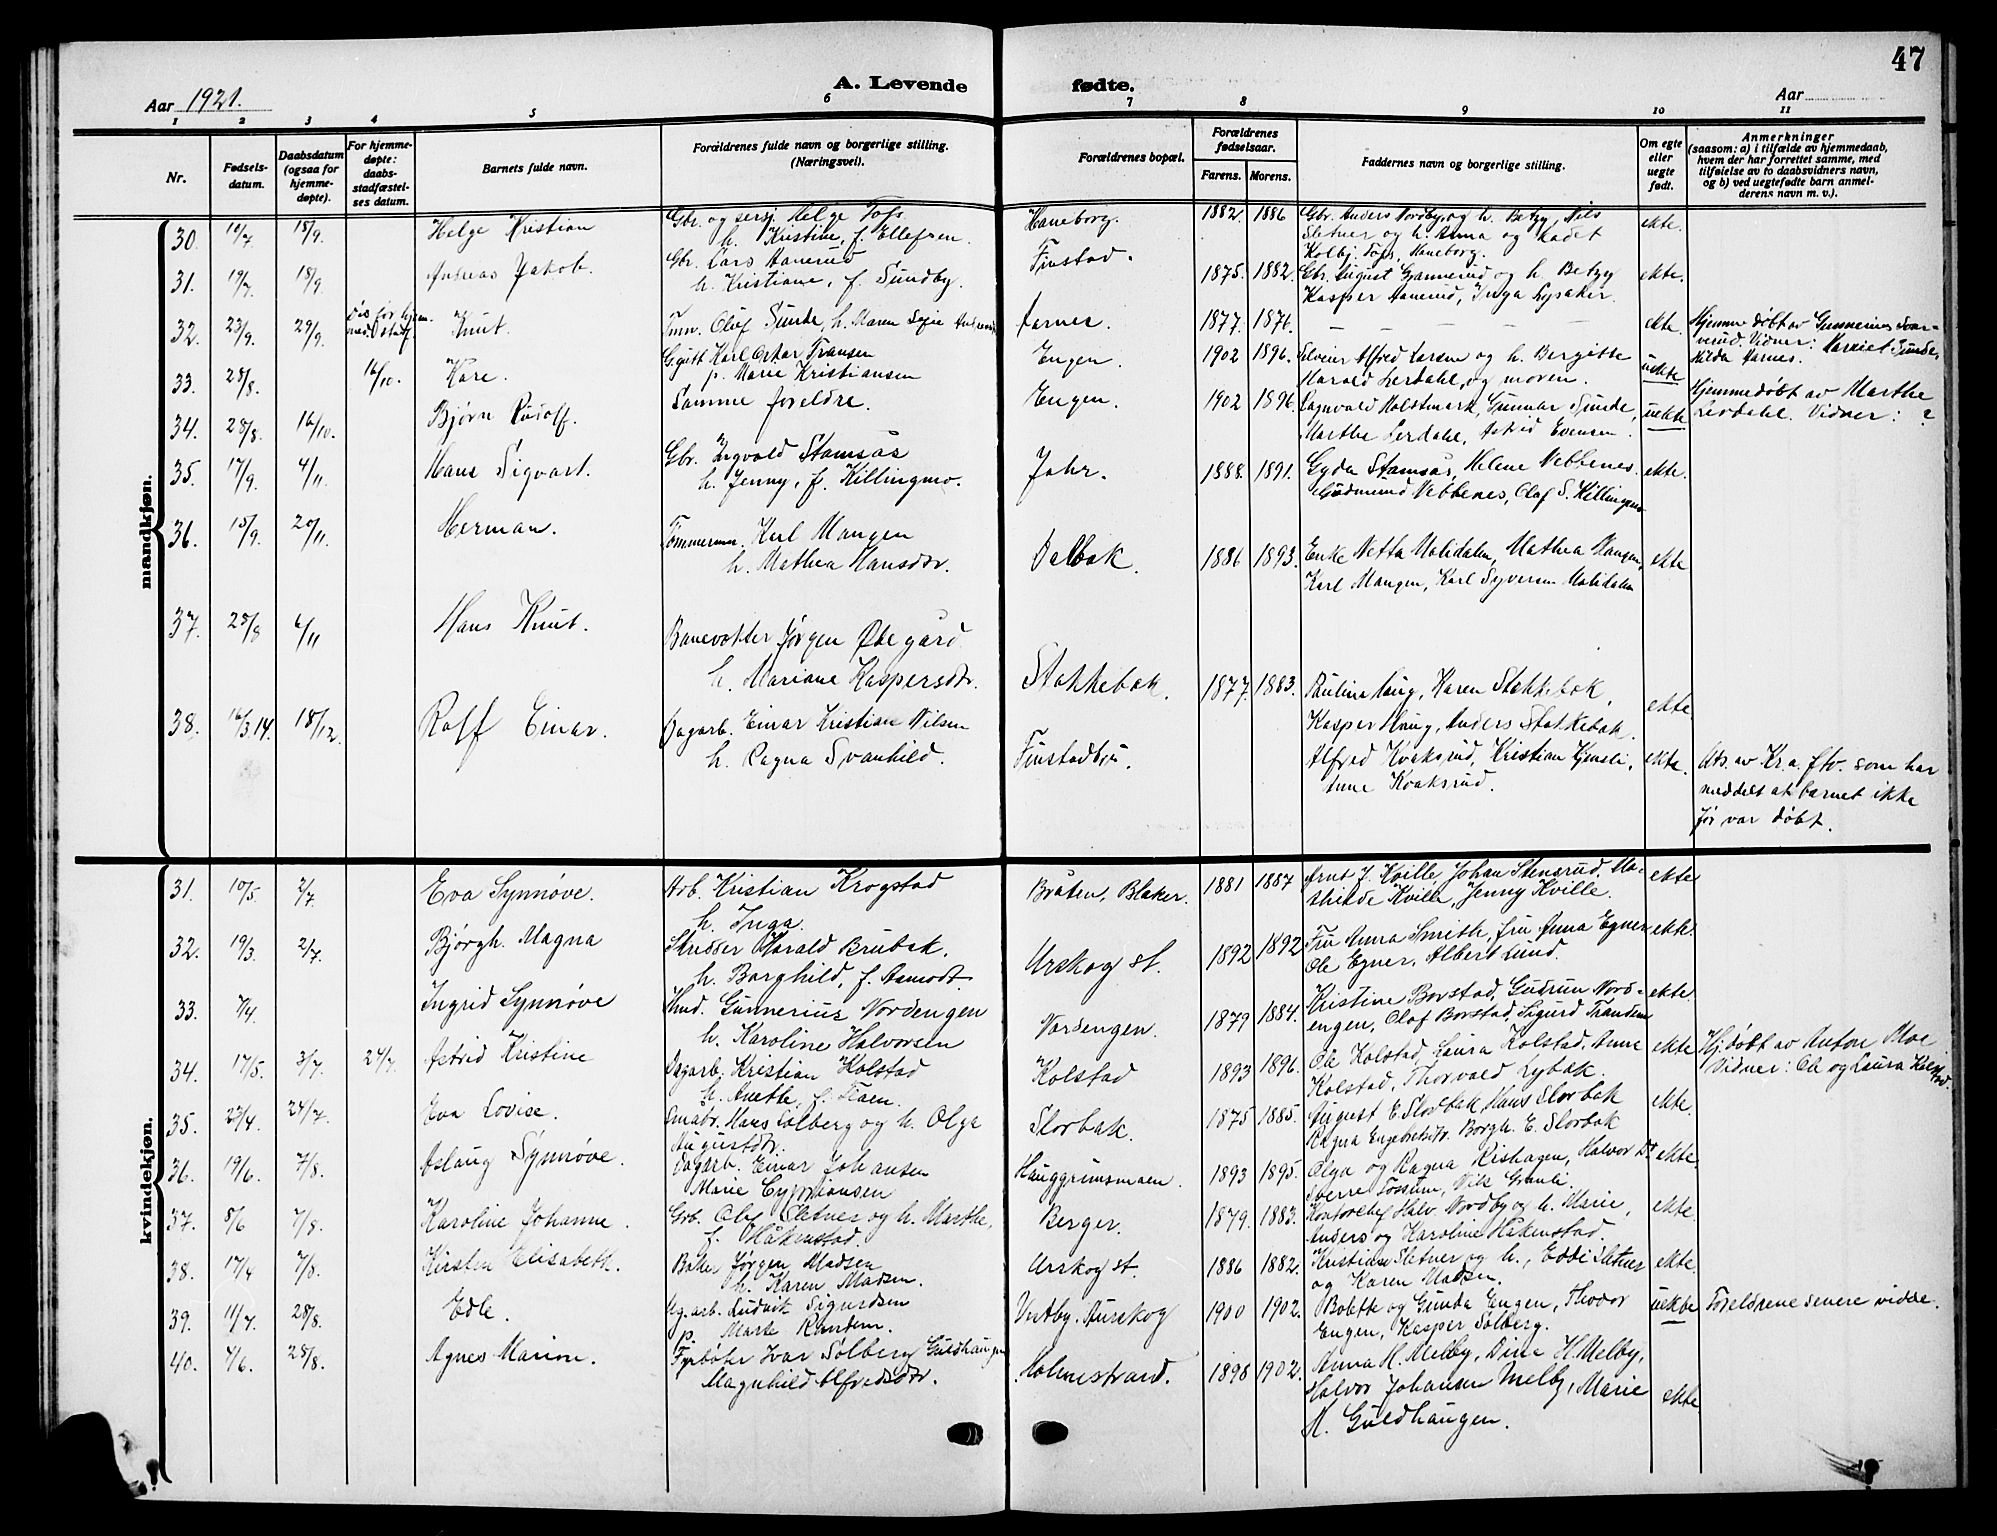 47
A. Levende fødte.
Aar 1921.
Aar
1 2 3 4 5 6 7 8 9 10 11
Nr.
Fødsels-
datum.
Daabsdatum
(ogsaa for
hjemme-
døpte).
For hjemme-
døpte:
daabs-
stadfæstel-
ses datum.
Barnets fulde navn.
Forældrenes fulde navn og borgerlige stilling.
(Næringsvei).
Forældrenes bopæl.
Forældrenes
fødselsaar.
Farens. Morens.
Faddernes navn og borgerlige stilling.
Om egte
eller
uegte
født.
Anmerkninger
(saasom: a) i tilfælde av hjemmedaab,
hvem der har forrettet samme, med
tilføielse av to daabsvidners navn,
og b) ved uegtefødte barn anmel-
derens navn m. v.).
mandkjøn.
30. 10/7 18/9. Helge Kristian
Gbr. og sersj. Helge Tofs
h. Kristine, f. Ellefsen.
Haneborg. 1882. 1886
Gbr. Anders Nordby, og h. Betzy, Nils
Sletner og h. Anna og Kadet
Kolbj. Tofs, Haneborg.
ekte.
31. 19/7 18/9. Andreas Jakob.
Gbr. Lars Aanerud
h. Kristiane, f. Sundby.
Finstad. 1875. 1882.
Gbr. August Gjannerud og h. Betzy
Kasper Aanerud, Inga Lysaker.
ekte.
32. 23/9. 29/9. Knut.
Olaf Sunde, h. Maren Sofie
Aarnes. 1877. 1876.
— — — — —
ekte.
Hjemmedøbt av Gunnerius Svar-
verud. Vidner: Harriet Sunde,
Hilda Aarnes.
33. 28/8. 16/10. Kåre.
Karl Oskar Fransen
p. Marie Kristiansen
Engen. 1902 1896.
Alfred Larsen og h. Bergitte
Harald Lerdahl, og moren.
uekte
Hjemmedøbt av Marthe
Lerdahl. Vidner: ?
34. 28/8. 16/10. Bjørn Rudolf.
Samme foreldre.
Engen. 1902 1896.
Ragnvald Holstmark, Gunnar Sunde,
Marthe Lerdahl, Astrid Evensen.
uekte
35. 17/9. 4/11. Hans Sigvart.
Gbr. Ingvald Stamsås
h. Jenny, f. Killingmo.
Jahr. 1888. 1891.
Gyda Stamsås, Helene Vebbenes.
Gudmund Vebbenes, Olaf S. Killingmo
ekte.
36. 15/9. 20/11. Herman.
Tømmerm. Karl Mangen
h. Mathea Hansdtr.
Dalbak. 1886 1893.
Enke Netta Molidalen, Mathea Mangen,
Karl Mangen, Karl Syversen Molidalen
ekte
37. 25/8 6/11 Hans Knut.
Banevokter Jørgen Ødegård
h. Mariane Kaspersdtr.
Stakkebak. 1877. 1883.
Paulina Haug, Karen Stakkebak,
Kasper Haug, Anders Stakkebak.
ekte
38. 16/3.14. 18/12. Rolf Einar.
Dagarb. Einar Kristian Nilsen
h. Ragna Svanhild.
Finstadbru.
Alfred Kvaksrud, Kristian Kjensli,
Anne Kvaksrud.
ekte.
Ats. av Kr.a. ftv. som har
meddelt at barnet ikke
før var døbt.
kvindekjøn.
31. 10/5. 2/7. Eva Synnøve.
Arb. Kristian Krogstad
h. Inga.
Bråten, Blaker. 1881 1887
Arnt J. Kville, Johan Stensrud, Ma-
thilde Kville, Jenny Kville.
ekte
32. 19/3. 2/7. Bjørgh. Magna
Skredder Harald Brubak.
h. Borghild, f. Aamodt.
Urskog st. 1892 1892
Fru Anna Smith, fru Anna Egner
Ole Egner, Albert Lund.
ekte.
33. 7/4. Ingrid Synnøve
Gunnerius Nordengen
h. Karoline Halvorsen
Nordengen. 1879 1884.
Kristine Borstad, Gudrun Nord-
engen, Olaf Borstad, Sigurd Trandem
ekte.
34. 17/5. 3/7. 24/7. Astrid Kristine
Dagarb. Kristian Kolstad
h. Anethe, f. Floen.
Kolstad 1893 1896.
Ole Kolstad, Laura Kolstad, Anne
Kolstad, Thorvald Lybak.
ekte
Hj.døbt av Anton Moe
Vidner: Ole og Laura Kolstad.
35. 23/4. 24/7. Eva Lovise.
Småbr. Hans Solberg og h. Olga
Augustdtr.
Slorbak. 1875 1885.
August E. Slorbak, Hans Slorbak
Ragna Engebretsdtr. Borgh. E. Slorbak
ekte.
36. 19/6. 7/8. Aslaug Synnøve.
Dagarb. Einar Johansen
Marie Cypriansen
Hauggrimsmoen. 1893 1895.
Olga og Ragna Rishagen, Halvor
Sverre Fossum, Nils Granli.
ekte.
37. 5/6 7/8. Karoline Johanne.
Grb. Olaf Sletner og h. Marthe,
f. Håkenstad.
Berger. 1879. 1883.
Kontorchef Halv. Nordby og h. Marie,
Anders og Karoline Håkenstad.
ekte.
38. 17/4 7/8. Kirsten Elisabeth.
Baker Jørgen Madsen
h. Karen Madsen.
Urskog st. 1886 1882.
Kristian Sletner og h., Eddi Sletner
og Karen Madsen.
ekte.
39. 11/7. 28/8. Edle.
Ludvik Sigurdsen
p. Marte Kandem.
Vestby. Aurskog 1900 1902.
Bolette og Gunda Engen, Thodor
Engen, Kasper Solberg.
uekte
Foreldrene senere viede.
40. 7/6. 28/8. Agnes Marion.
Fyrbøter Ivar Solberg Guldhaugen
Magnhild Alfredsdtr.
Holmestrand. 1898 1902.
Anna H. Melby, Dina H. Melby,
Halvor Johansen Melby, Marie
H. Guldhaugen.
ekte.